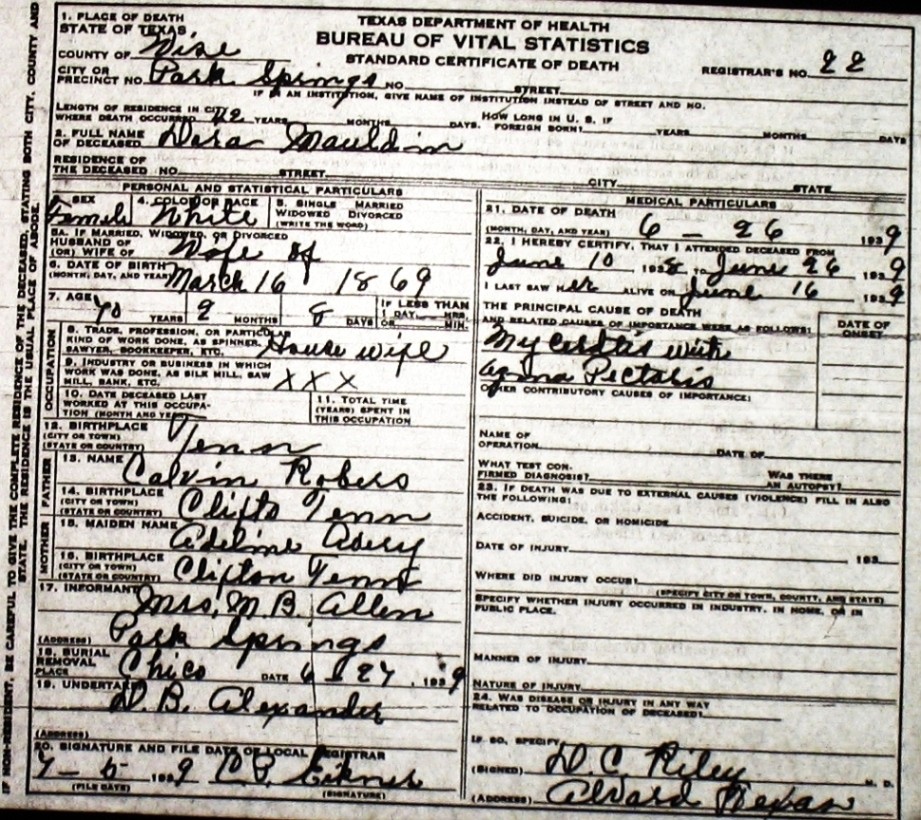 TEXAS DEPARTMENT OF HEALTH
BUREAU OF VITAL STATISTICS
STANDARD CERTIFICATE OF DEATH
REGISTRAR'S NO. 22
1. PLACE OF DEATH
STATE OF TEXAS
COUNTY OF Wise
CITY OR PRECINCT NO. Park Springs NO. STREET
IF IN AN INSTITUTION, GIVE NAME OF INSTITUTION INSTEAD OF STREET AND NO.
LENGTH OF RESIDENCE IN CITY WHERE DEATH OCCURRED 42 YEARS MONTHS DAYS. HOW LONG IN U. S. IF FOREIGN BORN? YEARS MONTHS DAYS
2. FULL NAME OF DECEASED Dora Mauldin
RESIDENCE OF THE DECEASED NO. STREET CITY STATE
PERSONAL AND STATISTICAL PARTICULARS
3. SEX Female
4. COLOR OR RACE White
5. SINGLE MARRIED WIDOWED DIVORCED (WRITE THE WORD)
5A. IF MARRIED, WIDOWED, OR DIVORCED
HUSBAND OF (OR) WIFE OF Wife of
6. DATE OF BIRTH (MONTH, DAY, AND YEAR) March 16 1869
7. AGE 70 YEARS MONTHS 8 DAYS IF LESS THAN 1 DAY HRS. OR MIN.
OCCUPATION
8. TRADE, PROFESSION, OR PARTICULAR KIND OF WORK DONE, AS SPINNER, SAWYER, BOOKKEEPER, ETC. House wife
9. INDUSTRY OR BUSINESS IN WHICH WORK WAS DONE, AS SILK MILL, SAW MILL, BANK, ETC. XXX
10. DATE DECEASED LAST WORKED AT THIS OCCUPATION (MONTH AND YEAR)
11. TOTAL TIME (YEARS) SPENT IN THIS OCCUPATION
12. BIRTHPLACE (CITY OR TOWN) (STATE OR COUNTRY) Tenn
FATHER
13. NAME Calvin Robers
14. BIRTHPLACE (CITY OR TOWN) (STATE OR COUNTRY) Clifto Tenn
MOTHER
15. MAIDEN NAME Adeline
16. BIRTHPLACE (CITY OR TOWN) (STATE OR COUNTRY) Clifton Tenn
17. INFORMANT Mrs. M. B. Allen
(ADDRESS) Park Springs
18. BURIAL REMOVAL PLACE Chico DATE 6 - 27, 1939
19. UNDERTAKER D. B. Alexander
(ADDRESS)
20. SIGNATURE AND FILE DATE OF LOCAL REGISTRAR
1939 C. P.
(FILE DATE) (SIGNATURE)
MEDICAL PARTICULARS
21. DATE OF DEATH
(MONTH, DAY, AND YEAR) 6 - 26 1939
22. I HEREBY CERTIFY, THAT I ATTENDED DECEASED FROM
June 10 1938 TO June 26 1939
I LAST SAW her ALIVE ON June 16 1939
THE PRINCIPAL CAUSE OF DEATH
AND RELATED CAUSES OF IMPORTANCE WERE AS FOLLOWS:
DATE OF ONSET
with
Pectoris
OTHER CONTRIBUTORY CAUSES OF IMPORTANCE:
NAME OF OPERATION DATE OF
WHAT TEST CONFIRMED DIAGNOSIS? WAS THERE AN AUTOPSY?
23. IF DEATH WAS DUE TO EXTERNAL CAUSES (VIOLENCE) FILL IN ALSO THE FOLLOWING:
ACCIDENT, SUICIDE, OR HOMICIDE
DATE OF INJURY 193
WHERE DID INJURY OCCUR?
(SPECIFY CITY OR TOWN, COUNTY, AND STATE)
SPECIFY WHETHER INJURY OCCURRED IN INDUSTRY, IN HOME, OR IN PUBLIC PLACE.
MANNER OF INJURY
NATURE OF INJURY
24. WAS DISEASE OR INJURY IN ANY WAY RELATED TO OCCUPATION OF DECEASED?
IF SO, SPECIFY
(SIGNED) D. C. Riley M. D.
(ADDRESS) Alvord Texas
IF NON-RESIDENT, BE CAREFUL TO GIVE THE COMPLETE RESIDENCE OF THE DECEASED, STATING BOTH CITY, COUNTY AND
STATE. THE RESIDENCE IS THE USUAL PLACE OF ABODE.